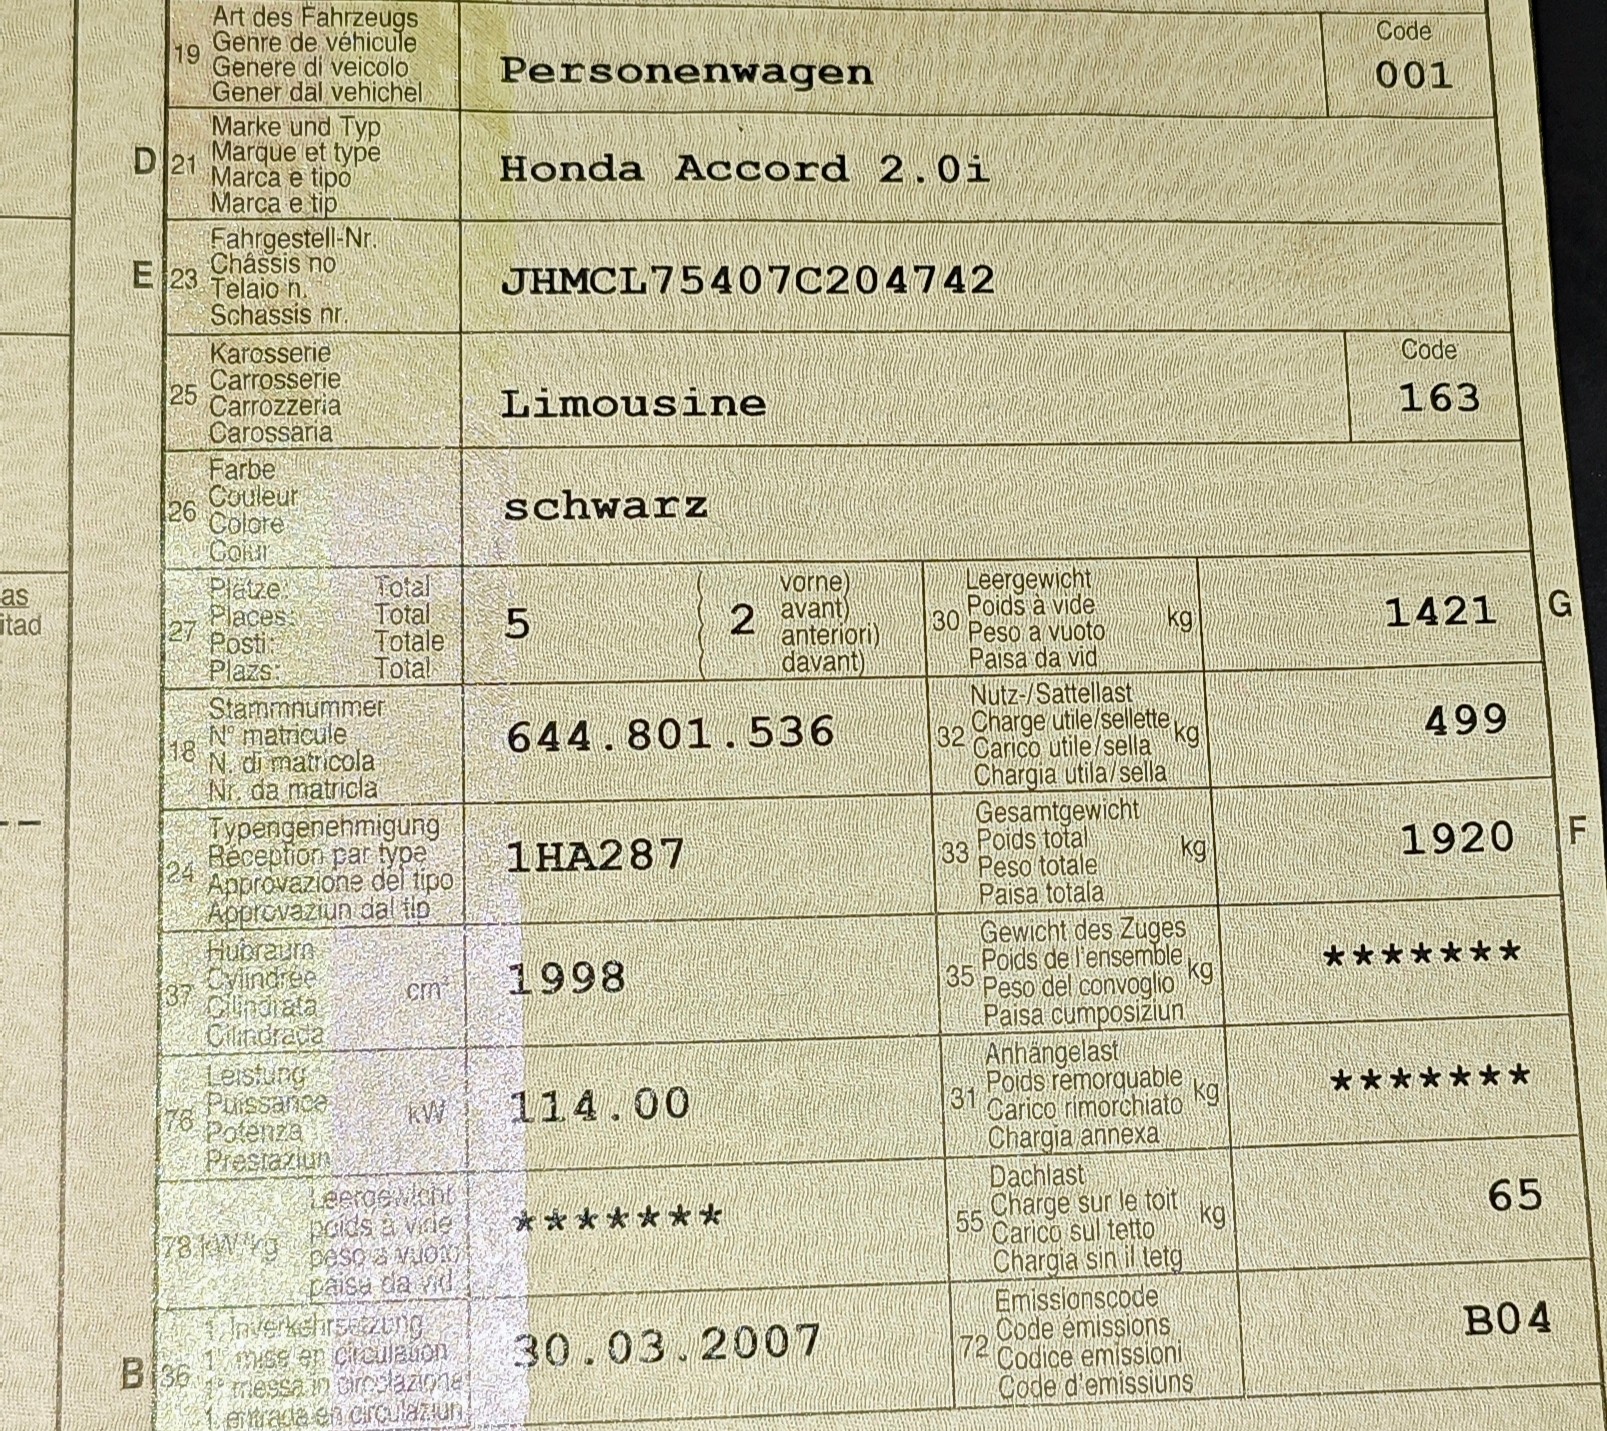 19 Art des Fahrzeugs
Genre de véhicule
Genere di veicolo
Gener dal vehichel
Personenwagen
Code
001
D 21 Marke und Typ
Marque et type
Marca e tipo
Marca e tip
Honda Accord 2.0i
E 23 Fahrgestell-Nr.
Châssis no
Telaio n.
Schassis nr.
JHMCL75407C204742
25 Karosserie
Carrosserie
Carrozzeria
Carossaria
Limousine
Code
163
26 Farbe
Couleur
Colore
Colur
schwarz
as
itad
27 Plätze: Total
Places: Total
Posti: Totale
Plazs: Total
5
2
vorne)
avant)
anteriori)
davant)
30 Leergewicht
Poids à vide
Peso a vuoto
Paisa da vid
kg
1421
G
18 Stammnummer
N° matricule
N. di matricola
Nr. da matricla
644.801.536
32 Nutz-/Sattellast
Charge utile/sellette
Carico utile/sella
Chargia utila/sella
kg
499
24 Typengenehmigung
Réception par type
Approvazione del tipo
Approvaziun dal tip
1HA287
33 Gesamtgewicht
Poids total
Peso totale
Paisa totala
kg
1920
F
37 Hubraum
Cylindrée
Cilindrata
Cilindrada
cm³
1998
35 Gewicht des Zuges
Poids de l'ensemble
Peso del convoglio
Paisa cumposiziun
kg
*******
76 Leistung
Puissance
Potenza
Prestaziun
kW
114.00
31 Anhängelast
Poids remorquable
Carico rimorchiato
Chargia annexa
kg
*******
78 kW/kg
Leergewicht
poids à vide
peso a vuoto
paisa da vid
*******
55 Dachlast
Charge sur le toit
Carico sul tetto
Chargia sin il tetg
kg
65
B 36 1. Inverkehrsetzung
1re mise en circulation
1a messa in circolazione
1. entrada en circulaziun
30.03.2007
72 Emissionscode
Code émissions
Codice emissioni
Code d'emissiuns
B04